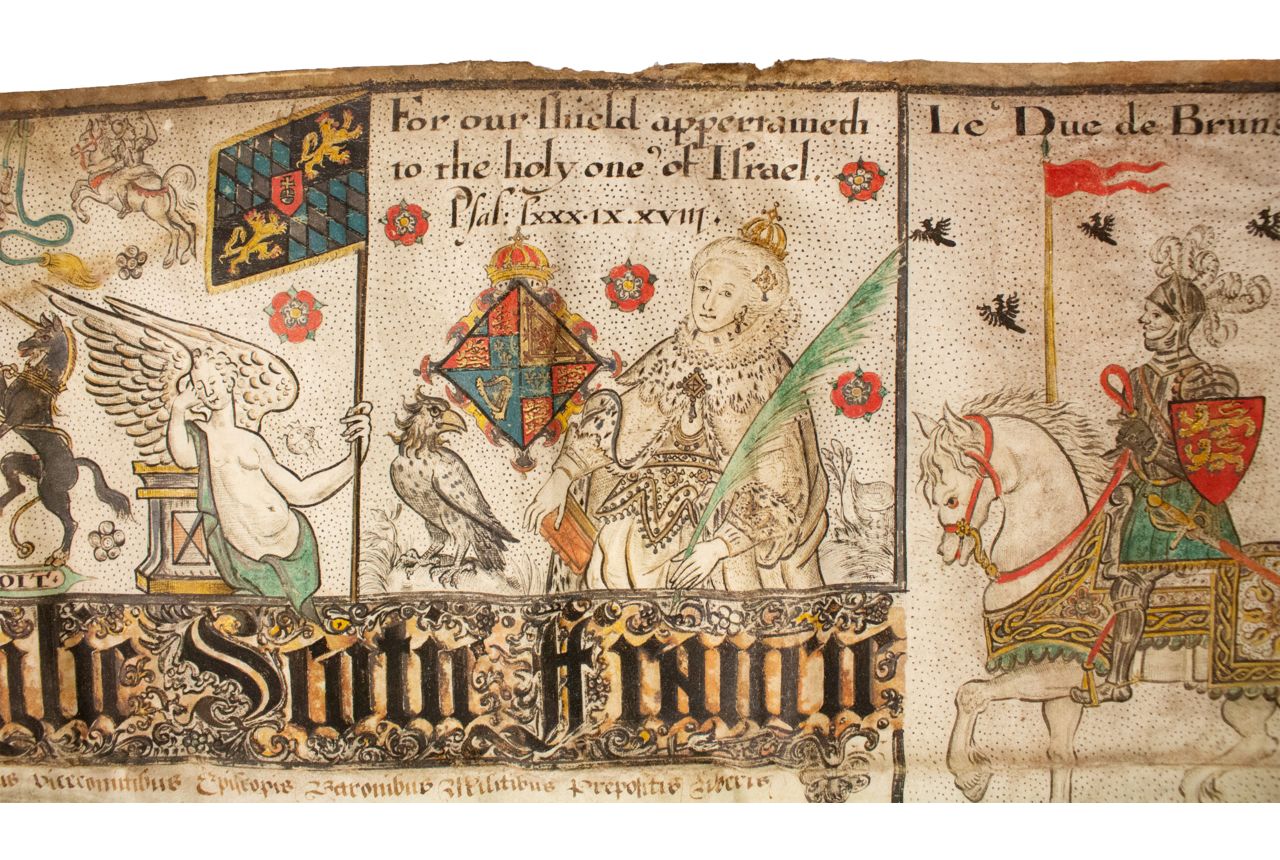 For our ſhield appertaineth
to the holy one of Iſrael.
Pſal: lxxx.ix.xviij.
Le Duc de Bruns
OIT.
Francie
vicecomitibus Episcopis Baronibus Militibus Prepositis